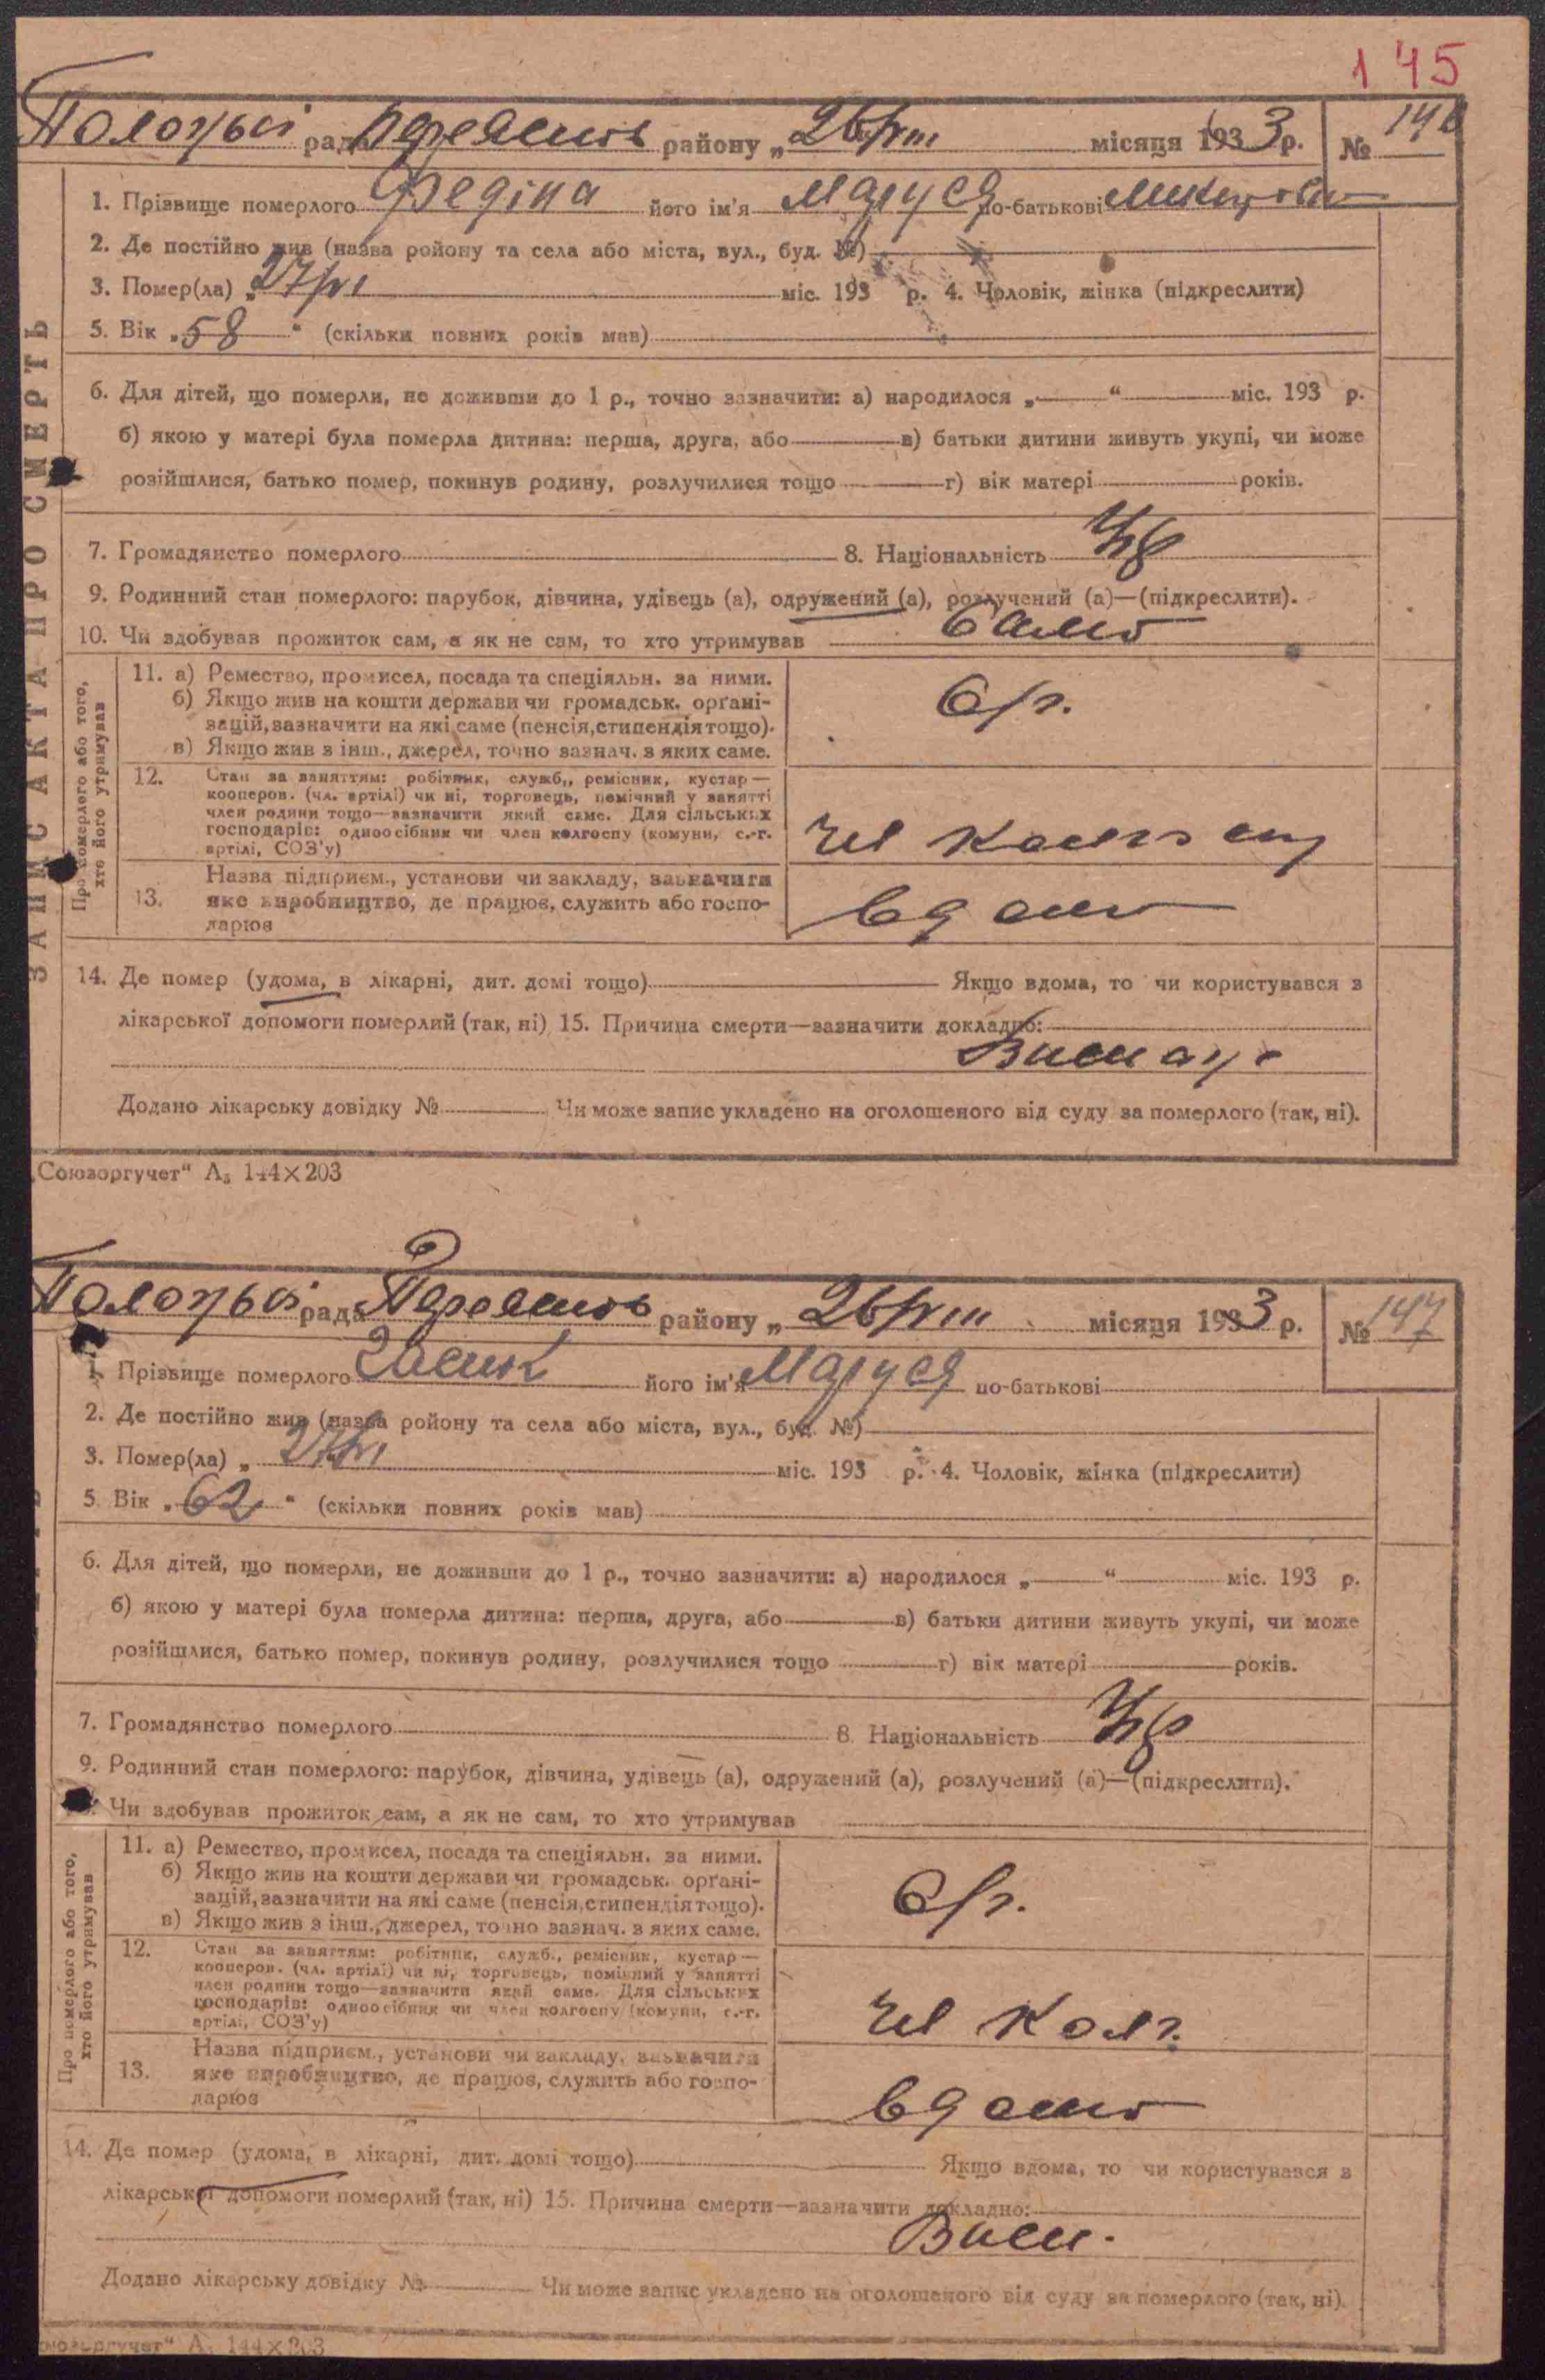 145
рада району „ місяця 1933 р. № 146
1. Прізвище померлого Федіна його ім'я Маруся по-батькові
2. Де постійно жив (назва ройону та села або міста, вул., буд. №)
3. Помер(ла) „ міс. 193 р. 4. Чоловік, жінка (підкреслити)
5. Вік „58" (скільки повних років мав)
6. Для дітей, що померли, не доживши до 1 р., точно зазначити: а) народилося „ " міс. 193 р.
б) якою у матері була померла дитина: перша, друга, або в) батьки дитини живуть укупі, чи може
розійшлися, батько помер, покинув родину, розлучилися тощо г) вік матері років.
7. Громадянство померлого 8. Національність Укр
9. Родинний стан померлого: парубок, дівчина, удівець (а), одружений (а), розлучений (а)—(підкреслити).
10. Чи здобував прожиток сам, а як не сам, то хто утримував
ЗАПИС АКТА ПРО СМЕРТЬ
Про померлого або того, хто його утримував
11. а) Ремество, промисел, посада та спеціяльн. за ними.
б) Якщо жив на кошти держави чи громадськ. орґані-
зацій, зазначити на які саме (пенсія, стипендія тощо).
в) Якщо жив з інш., джерел, точно зазнач. з яких саме.
12. Стан за заняттям: робітник, служб., ремісник, кустар—
кооперов. (чл. артілі) чи ні, торговець, помічний у занятті
член родини тощо—зазначити який саме. Для сільських
господарів: одноосібник чи член колгоспу (комуни, с.-г.
артілі, СОЗ'у)
чл колгоспу
Назва підприєм., установи чи закладу, зазначити
13. яке виробництво, де працює, служить або госпо-
дарює
14. Де помер (удома, в лікарні, дит. домі тощо) Якщо вдома, то чи користувався з
лікарської допомоги померлий (так, ні) 15. Причина смерти—зазначити докладно:
Додано лікарську довідку № Чи може запис укладено на оголошеного від суду за померлого (так, ні).
„Союзоргучет" А₅ 144×203
рада району „ місяця 1933 р. № 147
1. Прізвище померлого його ім'я Маруся по-батькові
2. Де постійно жив (назва ройону та села або міста, вул., буд. №)
3. Помер(ла) „ міс. 193 р. 4. Чоловік, жінка (підкреслити)
5. Вік „62" (скільки повних років мав)
6. Для дітей, що померли, не доживши до 1 р., точно зазначити: а) народилося „ " міс. 193 р.
б) якою у матері була померла дитина: перша, друга, або в) батьки дитини живуть укупі, чи може
розійшлися, батько помер, покинув родину, розлучилися тощо г) вік матері років.
7. Громадянство померлого 8. Національність Укр
9. Родинний стан померлого: парубок, дівчина, удівець (а), одружений (а), розлучений (а)—(підкреслити).
Чи здобував прожиток сам, а як не сам, то хто утримував
Про померлого або того, хто його утримував
11. а) Ремество, промисел, посада та спеціяльн. за ними.
б) Якщо жив на кошти держави чи громадськ. орґані-
зацій, зазначити на які саме (пенсія, стипендія тощо).
в) Якщо жив з інш., джерел, точно зазнач. з яких саме.
12. Стан за заняттям: робітник, служб., ремісник, кустар—
кооперов. (чл. артілі) чи ні, торговець, помічний у занятті
член родини тощо—зазначити який саме. Для сільських
господарів: одноосібник чи член колгоспу (комуни, с.-г.
артілі, СОЗ'у)
чл Колг.
Назва підприєм., установи чи закладу, зазначити
13. яке виробництво, де працює, служить або госпо-
дарює
14. Де помер (удома, в лікарні, дит. домі тощо) Якщо вдома, то чи користувався з
лікарської допомоги померлий (так, ні) 15. Причина смерти—зазначити докладно:
Висн.
Додано лікарську довідку № Чи може запис укладено на оголошеного від суду за померлого (так, ні).
А₅ 144×203